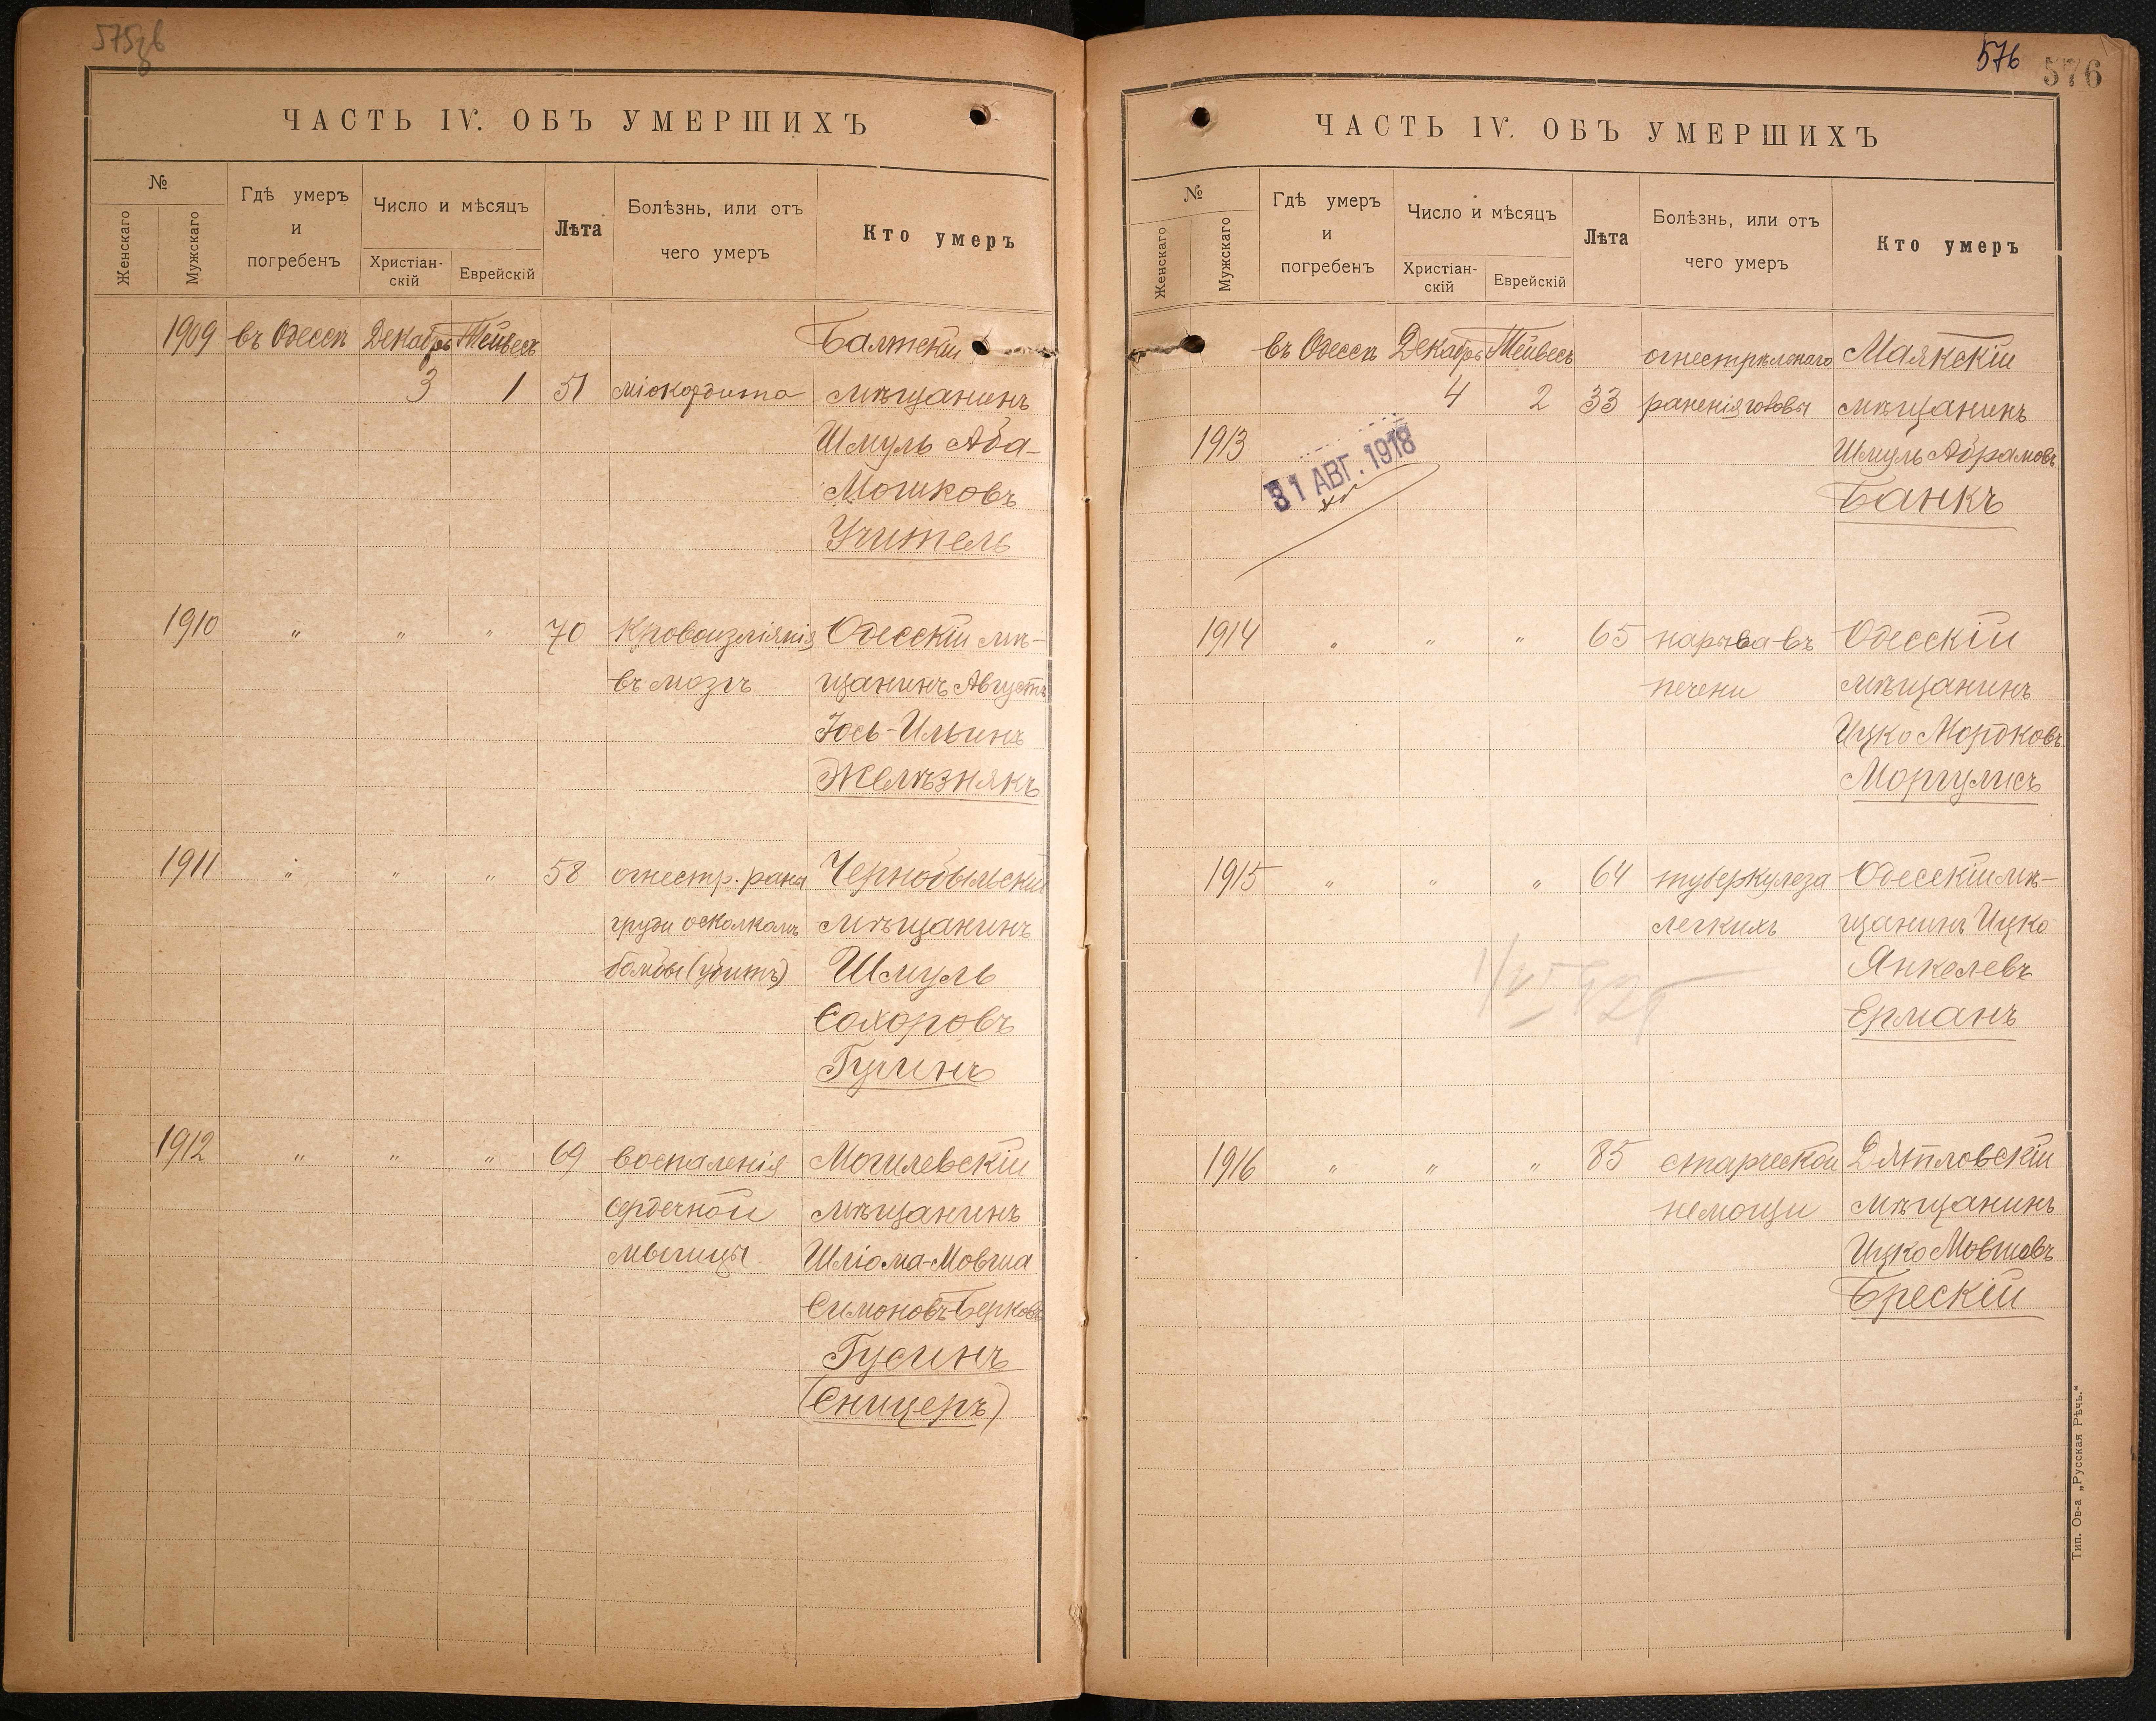 575 зв
ЧАСТЬ IV. ОБЪ УМЕРШИХЪ
№
Женскаго
Мужскаго
Гдѣ умеръ
и
погребенъ
Число и мѣсяцъ
Христіан-
скій
Еврейскій
Лѣта
Болѣзнь, или отъ
чего умеръ
Кто умеръ
1909 въ Одессѣ Декабрь Тейвесъ Балтскій
3 1 51 міокардита мѣщанинъ
Шмуль Аба-
Мошковъ
Учитель
1910 " " " 70 Кровоизліянія Одесскій мѣ-
въ мозгъ щанинъ Августъ
Іось-Ильинъ
Желѣзнякъ
1911 " " " 58 огнестр. раны Чернобыльскій
груди осколкомъ мѣщанинъ
бомбы (убитъ) Шмуль
Сохоровъ
Гузинъ
1912 " " " 69 воспаленія Могилевскій
сердечной мѣщанинъ
мышцы Шліома-Мовша
Симоновъ-Берковъ
Гусинъ
(Сницеръ)
576 576
ЧАСТЬ IV. ОБЪ УМЕРШИХЪ
№
Женскаго
Мужскаго
Гдѣ умеръ
и
погребенъ
Число и мѣсяцъ
Христіан-
скій
Еврейскій
Лѣта
Болѣзнь, или отъ
чего умеръ
Кто умеръ
въ Одессѣ Декабрь Тейвесъ огнестрѣленаго Маякскій
4 2 33 раненія головы мѣщанинъ
1913 Шмуль Абрамовъ
31 АВГ. 1918
Банкъ
1914 " " " 65 нарыва въ Одесскій
печени мѣщанинъ
Ицко Мордковъ
Моргулисъ
1915 " " " 64 туберкулеза Одесскій мѣ-
легкихъ щанинъ Ицко
Янкелевъ
Ерманъ
1916 " " " 85 старческой Дятловскій
немощи мѣщанинъ
Ицко Мовшовъ
Брескій
Тип. Ов-а „Русская Рѣчь.“